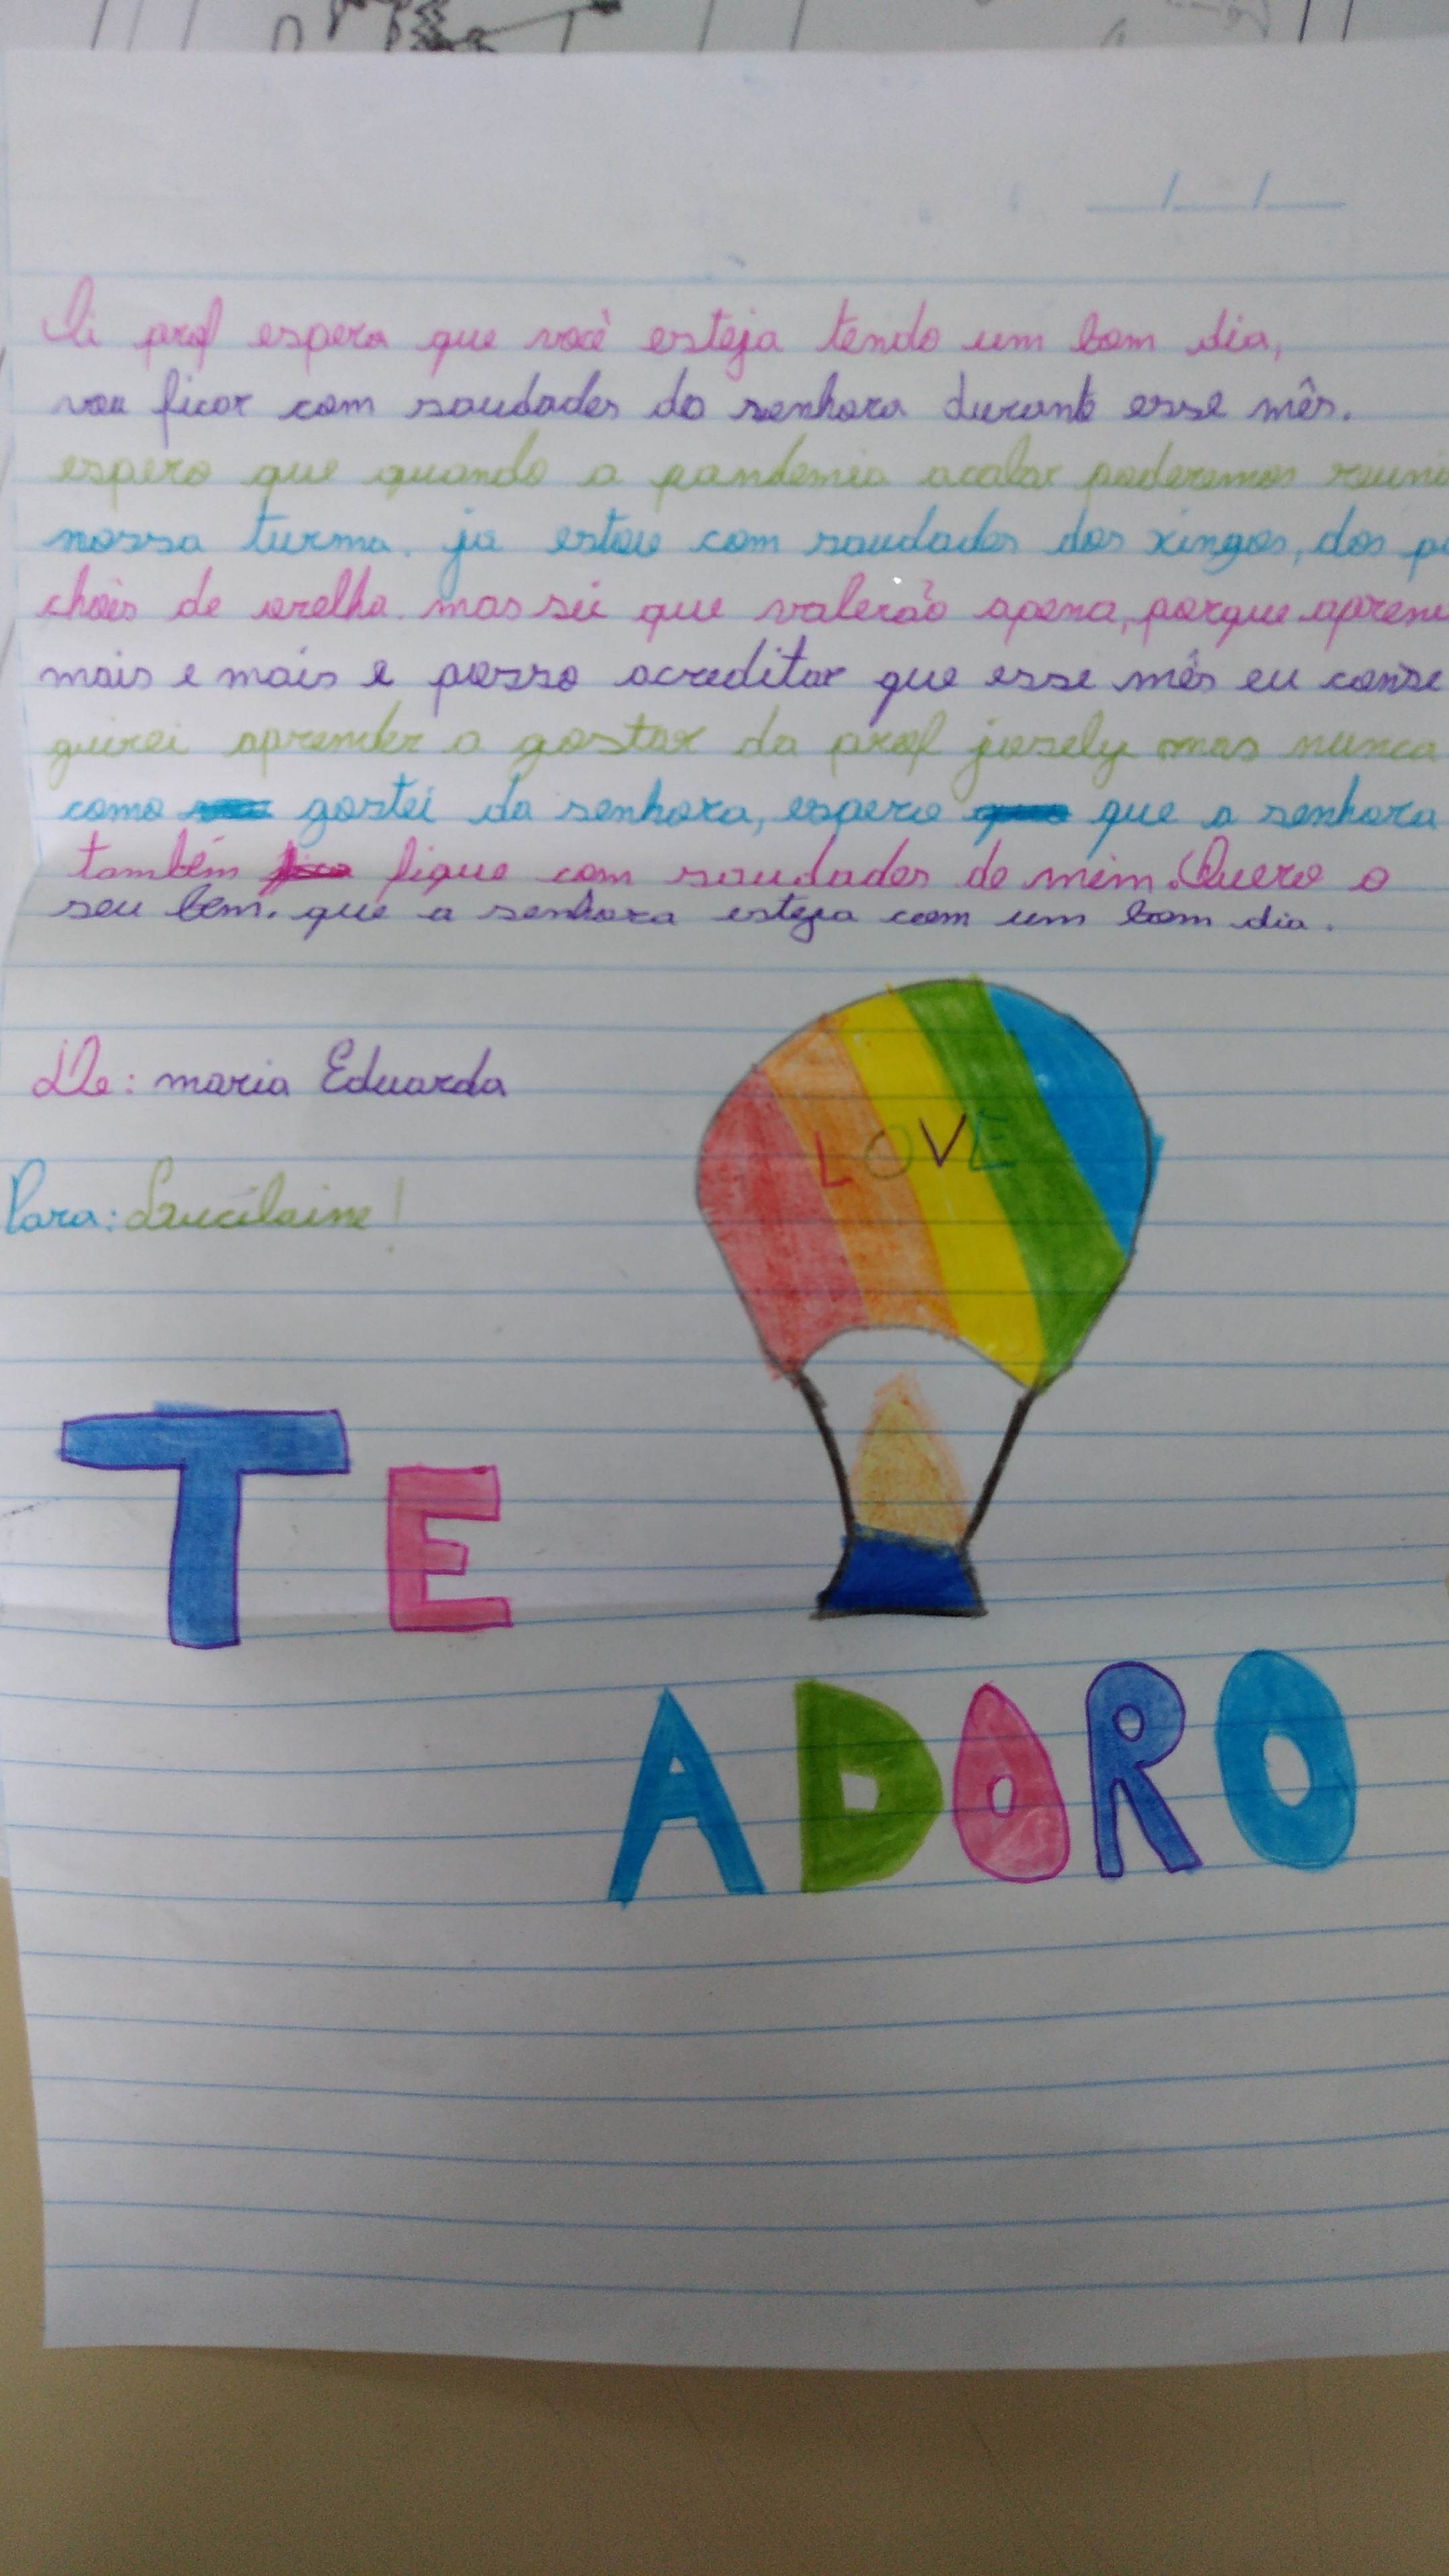 Oi prof espero que você esteja tendo um bom dia,
vou ficar com saudades da senhora durante esse mês.
espero que quando a pandemia acabar poderemos reuni
nossa turma. ja estou com saudades dos xingos, dos pu
chões de orelha. mas sei que valerão apena, porque apren
mais e mais e posso acreditar que esse mês eu conse
guirei aprender a gostar da prof josely mas nunca
como gostei da senhora, espero que a senhora
também fique com saudades de mim. Quero o
seu bem. que a senhora esteja com um bom dia.
De: maria Eduarda
Para: Laucilaine!
LOVE
TE
ADORO